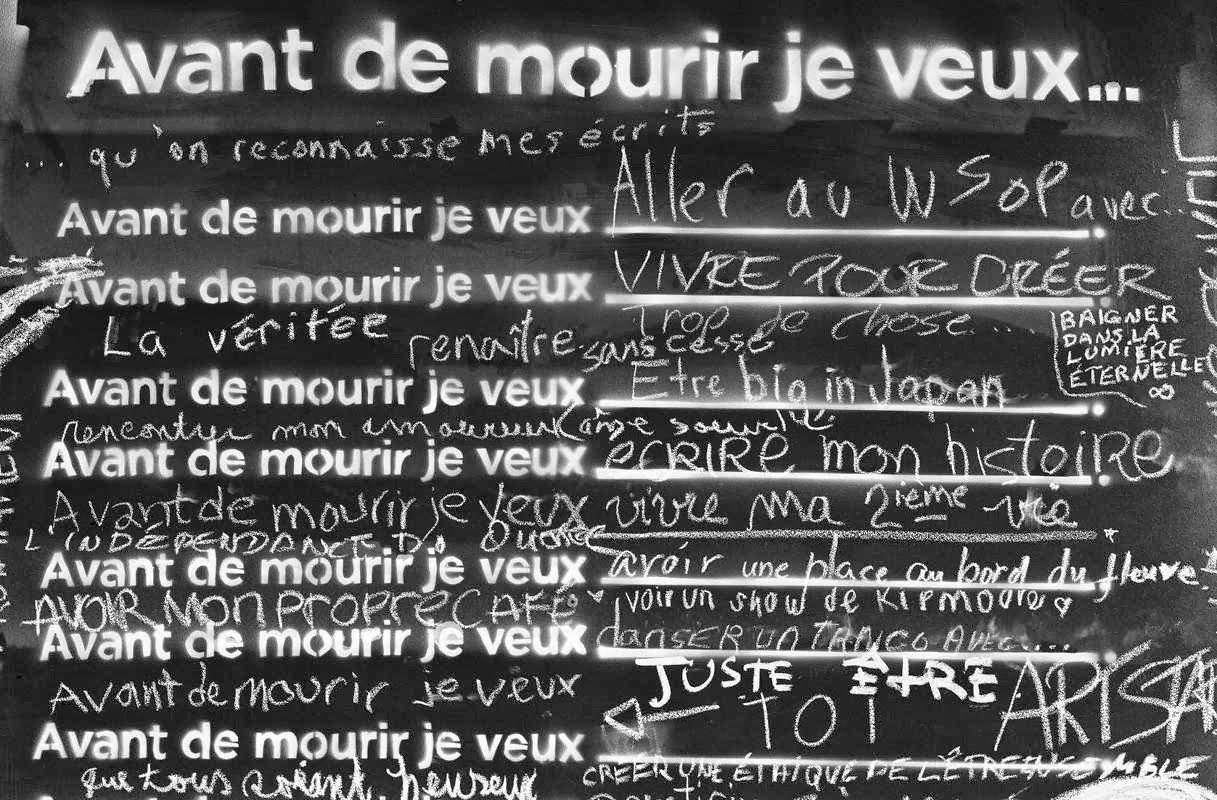 Avant de mourir je veux...
... qu'on reconnaisse mes écrits
Aller au WSOP avec...
Avant de mourir je veux
VIVRE POUR CRÉER
Avant de mourir je veux
Trop de chose.....
BAIGNER
DANS LA
LUMIÈRE
ÉTERNELLE
∞
La véritée
renaître sans cesse
Être big in Japan...
Avant de mourir je veux
rencontrer mon amoureux
âme soeur
Avant de mourir je veux
ÉCRIRE mon histoire
Avant de mourir je veux vivre ma 2ième vie
L'INDÉPENDANCE DU
Avant de mourir je veux
avoir une place au bord du fleuve
AVOIR MON PROPRE CAFÉ
voir un show de
Avant de mourir je veux
danSER UN TANGO AVEC....
JUSTE ÊTRE
Avant de mourir je veux
TOI
ARTISTA
Avant de mourir je veux
que tous soient heureux
CRÉER UNE ÉTHIQUE DE L'ÊTRE ENSEMBLE